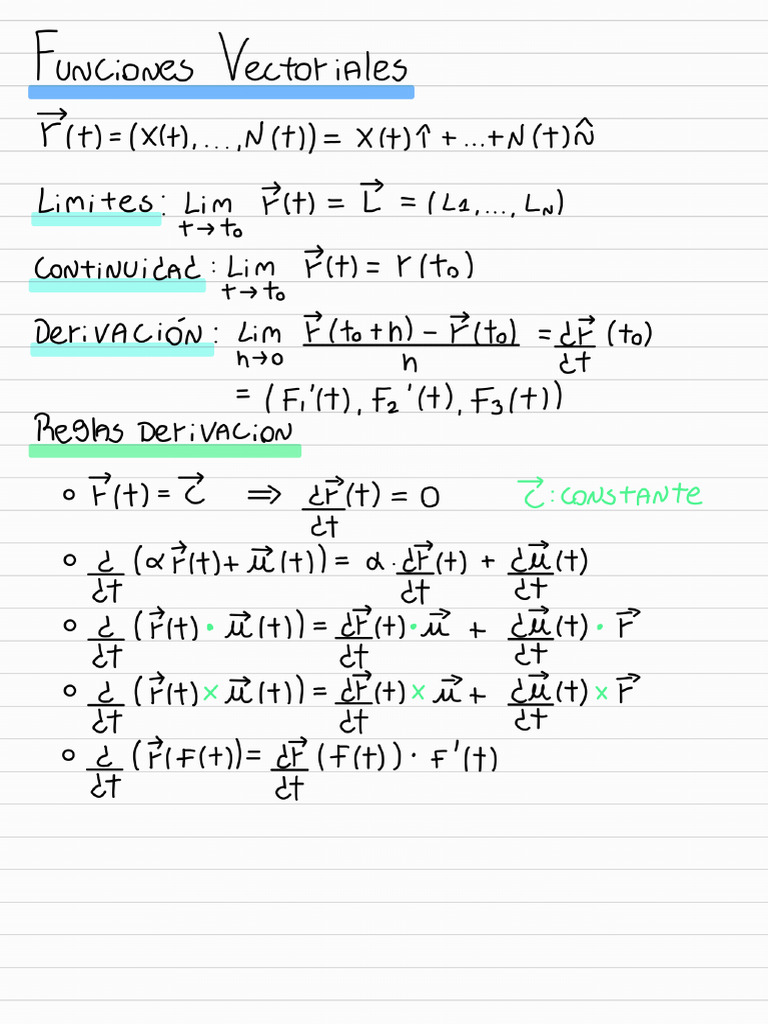 Funciones Vectoriales
r⃗(t) = (x(t), ..., N(t)) = x(t)î + ... + N(t)n̂
Limites: Lim t→t₀ r⃗(t) = L⃗ = (L1, ..., LN)
Continuidad: Lim t→t₀ r⃗(t) = r(t₀)
Derivación: Lim h→0 (r⃗(t₀+h) − r⃗(t₀))/h = dr⃗/dt (t₀)
= (F₁'(t), F₂'(t), F₃(t))
Reglas Derivacion
∘ r⃗(t) = c⃗ ⟹ dr⃗/dt (t) = 0 c⃗: constante
∘ d/dt (αr⃗(t) + μ⃗(t)) = α · dr⃗/dt (t) + dμ⃗/dt (t)
∘ d/dt (r⃗(t) · μ⃗(t)) = dr⃗/dt (t) · μ⃗ + dμ⃗/dt (t) · r⃗
∘ d/dt (r⃗(t) × μ⃗(t)) = dr⃗/dt (t) × μ⃗ + dμ⃗/dt (t) × r⃗
∘ d/dt (r⃗(F(t)) = dr⃗/dt (F(t)) · F'(t)